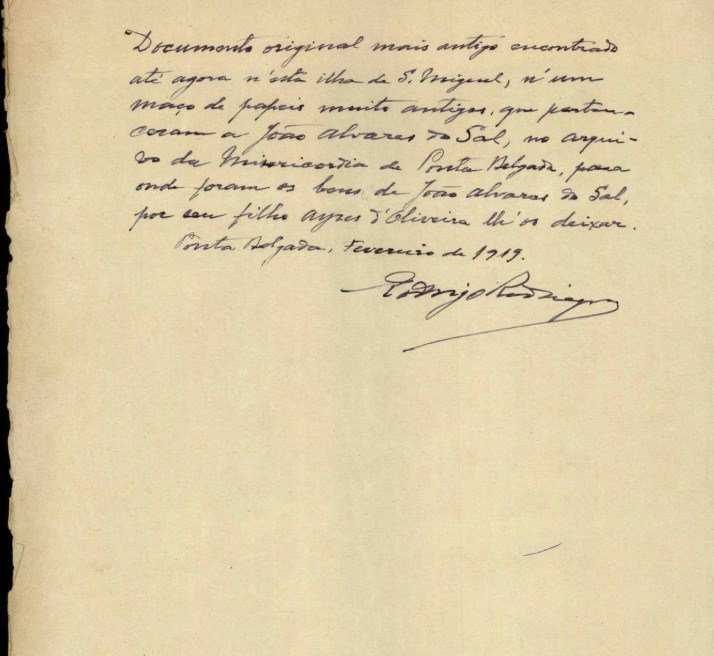 Documento original mais antigo encontrado
até agora n'esta ilha de S. Miguel, n'um
maço de papeis muito antigos, que perten-
ceram a João Alvares do Sal, no arqui-
vo da Misericordia de Ponta Delgada, para
onde foram os bens de João Alvares do Sal,
por seu filho Ayres d'Oliveira lh'os deixar.
Ponta Delgada, Fevereiro de 1919.
Rodrigo Rodrigues